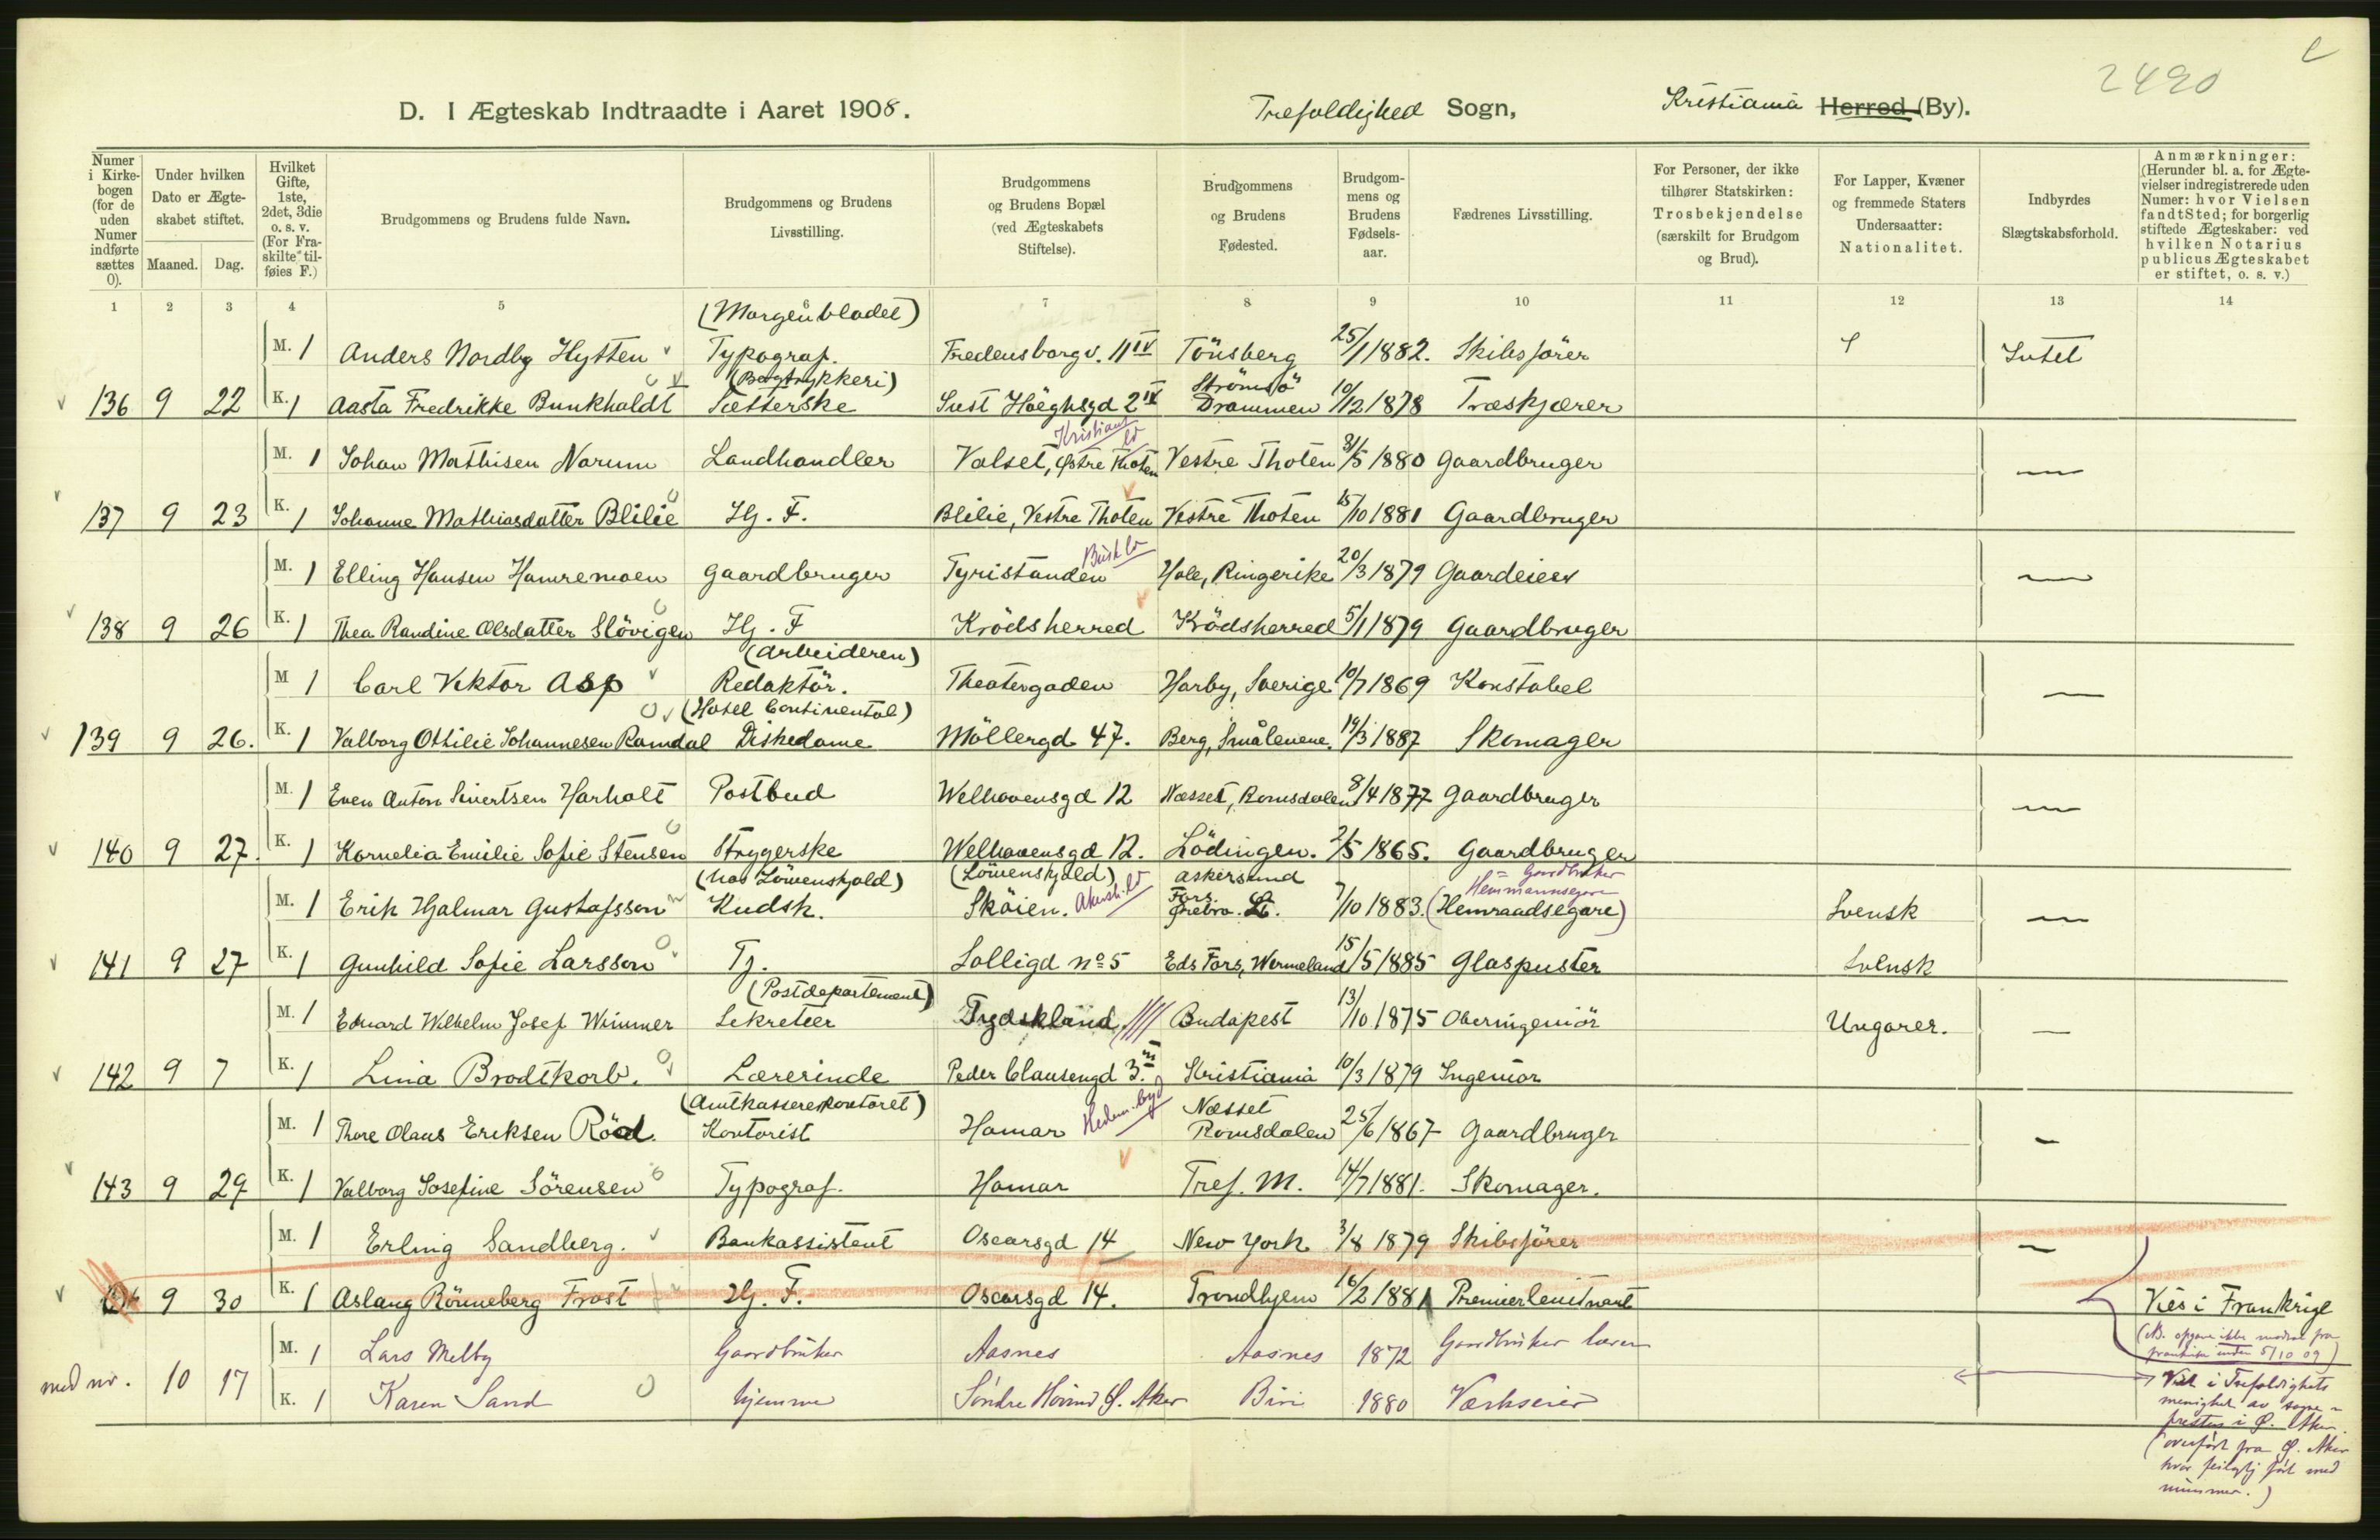 2490
D. I Ægteskab Indtraadte i Aaret 1908. Trefoldighed Sogn, Kristiania Herred (By).
Numer i Kirkebogen (for de uden Numer indførte sættes 0).
Under hvilken Dato er Ægteskabet stiftet.
Maaned. Dag.
Hvilket Gifte, 1ste, 2det, 3die o. s. v. (For Fraskilte tilføies F.)
Brudgommens og Brudens fulde Navn.
Brudgommens og Brudens Livsstilling.
Brudgommens og Brudens Bopæl (ved Ægteskabets Stiftelse).
Brudgommens og Brudens Fødested.
Brudgommens og Brudens Fødselsaar.
Fædrenes Livsstilling.
For Personer, der ikke tilhører Statskirken: Trosbekjendelse (særskilt for Brudgom og Brud).
For Lapper, Kvæner og fremmede Staters Undersaatter: Nationalitet.
Indbyrdes Slægtskabsforhold.
Anmærkninger: (Herunder bl. a. for Ægtevielser indregistrerede uden Numer: hvor Vielsen fandt Sted; for borgerlig stiftede Ægteskaber: ved hvilken Notarius publicus Ægteskabet er stiftet, o. s. v.)
1 2 3 4 5 6 7 8 9 10 11 12 13 14
(Morgenbladet)
M. 1 Anders Nordby Hytten Typograf. Fredensborgv. 11 IV Tönsberg 25/1 1882. Skibsförer Intet
(Bogtrykkeri) Strömsö
136 9 22 K. 1 Aasta Fredrikke Bunkholdt Sætterske Sust Höeghsgd 2 IV Drammen 10/12 1878 Træskjærer
Kristians
M. 1 Johan Mathisen Narum Landhandler Valset, Østre Thoten Vestre Thoten 31/5 1880 Gaardbruger —
137 9 23 K. 1 Johanne Mathiasdatter Blilie Hj. F. Blilie, Vestre Thoten Vestre Thoten 15/10 1881 Gaardbruger
Busk
M. 1 Elling Hansen Hamremoen Gaardbruger Tyristanden Hole, Ringerike 20/3 1879 Gaardeier —
138 9 26 K. 1 Thea Randine Olsdatter Slövigen Hj. F Krödsherred Krödsherred 5/1 1879 Gaardbruger
(Arbeideren)
M 1 Carl Viktor Asp Redaktör. Theatergaden Harby, Sverige 10/7 1869 Konstabel —
(Hotel Continental)
139 9 26. K. 1 Valborg Ottilie Johannesen Ramdal Diskedame Möllergd 47. Berg, Smålenene. 19/3 1887 Skomager
M. 1 Even Anton Sivertsen Harholt Postbud Welhavensgd 12 Næsset, Romsdalen 8/4 1877 Gaardbruger —
140 9 27. K. 1 Kornelia Emilie Sofie Stensen Strygerske Welhavensgd 12. Lödingen. 2/5 1865. Gaardbruger
(hos Löwenskjold) (Löwenskjold) Askersund Gaardbruker
Hemmannsegare
M. 1 Erik Hjalmar Gustafsson Kudsk. Sköien. Akersh. Fors. Örebro. L. 7/10 1883. (Hemraadsegare) Svensk —
141 9 27 K. 1 Gunhild Sofie Larsson Tj. Solligd no 5 Eds Fors, Wermeland 15/5 1885 Glaspuster Svensk
(Postdepartement)
M. 1 Eduard Wilhelm Josef Wimmer Sekretær Tydskland //// Budapest 13/10 1875 Oberingeniör Ungarer. —
142 9 7 K. 1 Lina Brodtkorb. Lærerinde Peder Clausengd 3. III Kristiania 10/3 1879 Ingeniör
(Amtkasserekontoret) Næsset
M. 1 Thore Olaus Eriksen Röd. Kontorist Hamar Hedem. byd Romsdalen 25/6 1867 Gaardbruger —
143 9 29 K. 1 Valborg Josefine Sörensen Typograf. Hamar Tref. M. 14/7 1881. Skomager.
M. 1 Erling Sandberg. Bankassistent Oscarsgd 14 New York 3/8 1879 Skibsförer —
9 30 K. 1 Aslaug Rönneberg Frost Hj. F. Oscarsgd 14. Trondhjem 16/2 1881 Premierleutnant Viés i Frankrige
M. 1 Lars Melby Gaardbruker Aasnes Aasnes 1872 Gaardbruker
med nr. 10 17 K. 1 Karen Sand hjemme Söndre Hovind Ø. Aker Biri 1880 Værkseier
Viet i Trefoldighets
menighet av sogne-
presten i Ø. Aker.
(overfört fra Ø. Aker
hvor feilagtig fört med
nummer.)